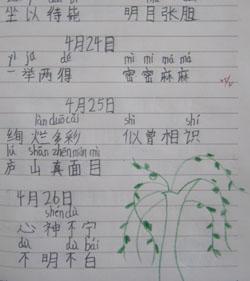 坐以待毙 明目张胆
4月24日
yì jǔ dé mì mì má má
一举两得 密密麻麻
4月25日
làn duō cǎi sì shí
绚烂多彩 似曾相识
lú shān zhēn miàn mù
庐山真面目
4月26日
shén
心神不宁
bái
不明不白